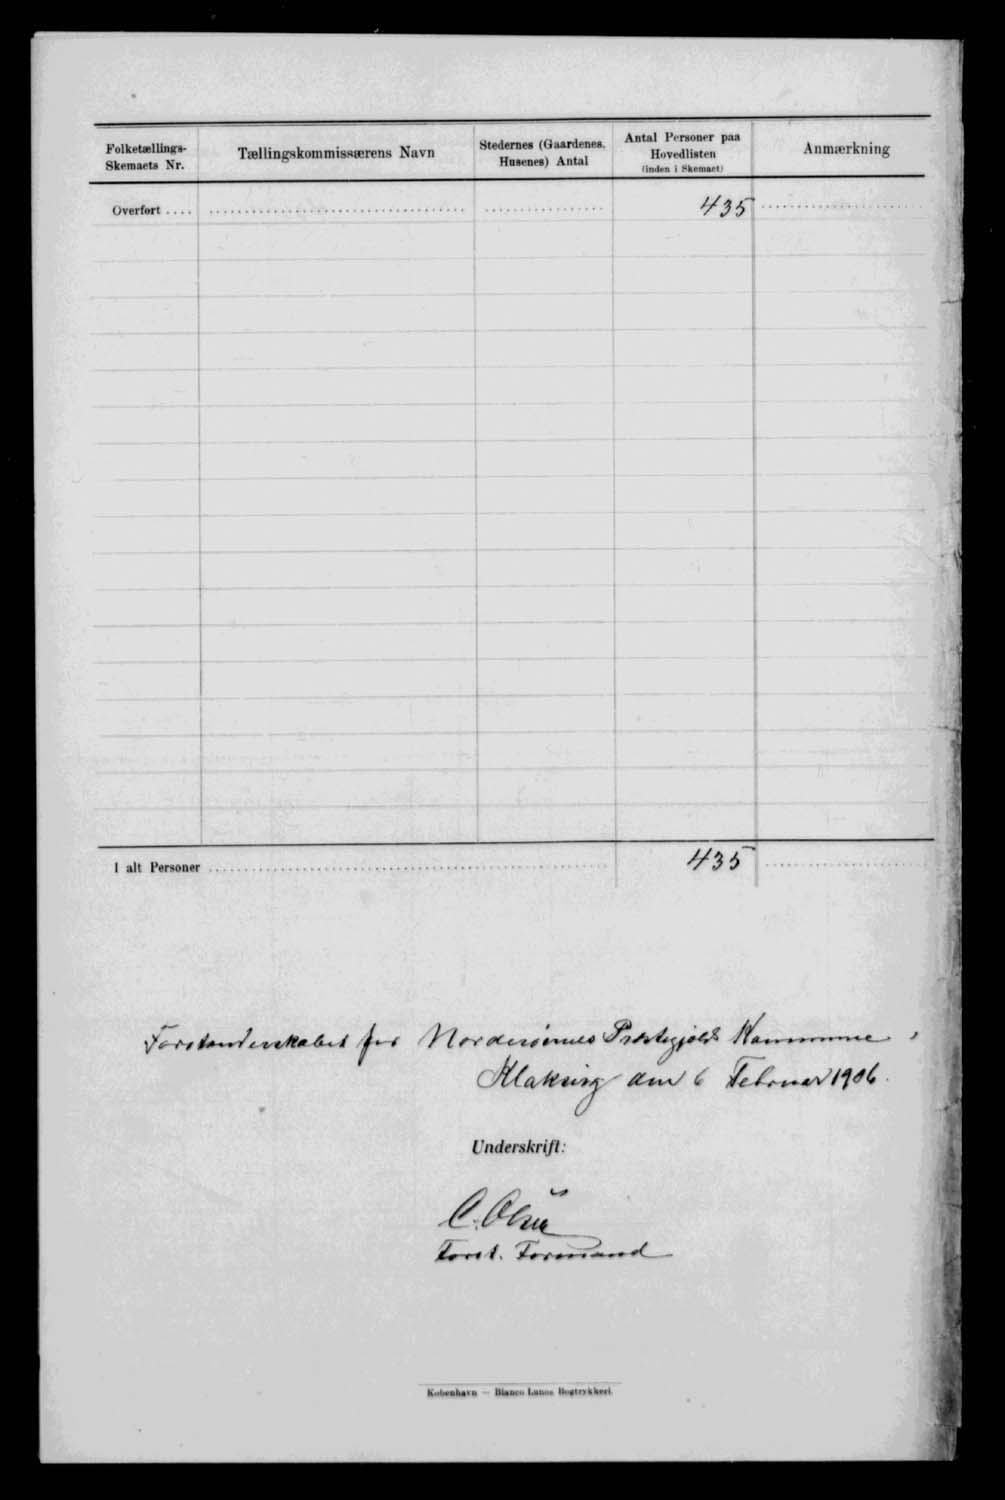 Folketællings-Skemaets Nr. | Tællingskommissærens Navn | Stedernes (Gaardenes, Husenes) Antal | Antal Personer paa Hovedlisten (inden i Skemaet) | Anmærkning
Overført .... 435
I alt Personer 435
Forstanderskabet for Norderøernes Præstegjælds Kommune,
Klaksvig den 6 Februar 1906.
Underskrift:
C. Olsen
Forst. Formand
København — Bianco Lunos Bogtrykkeri.